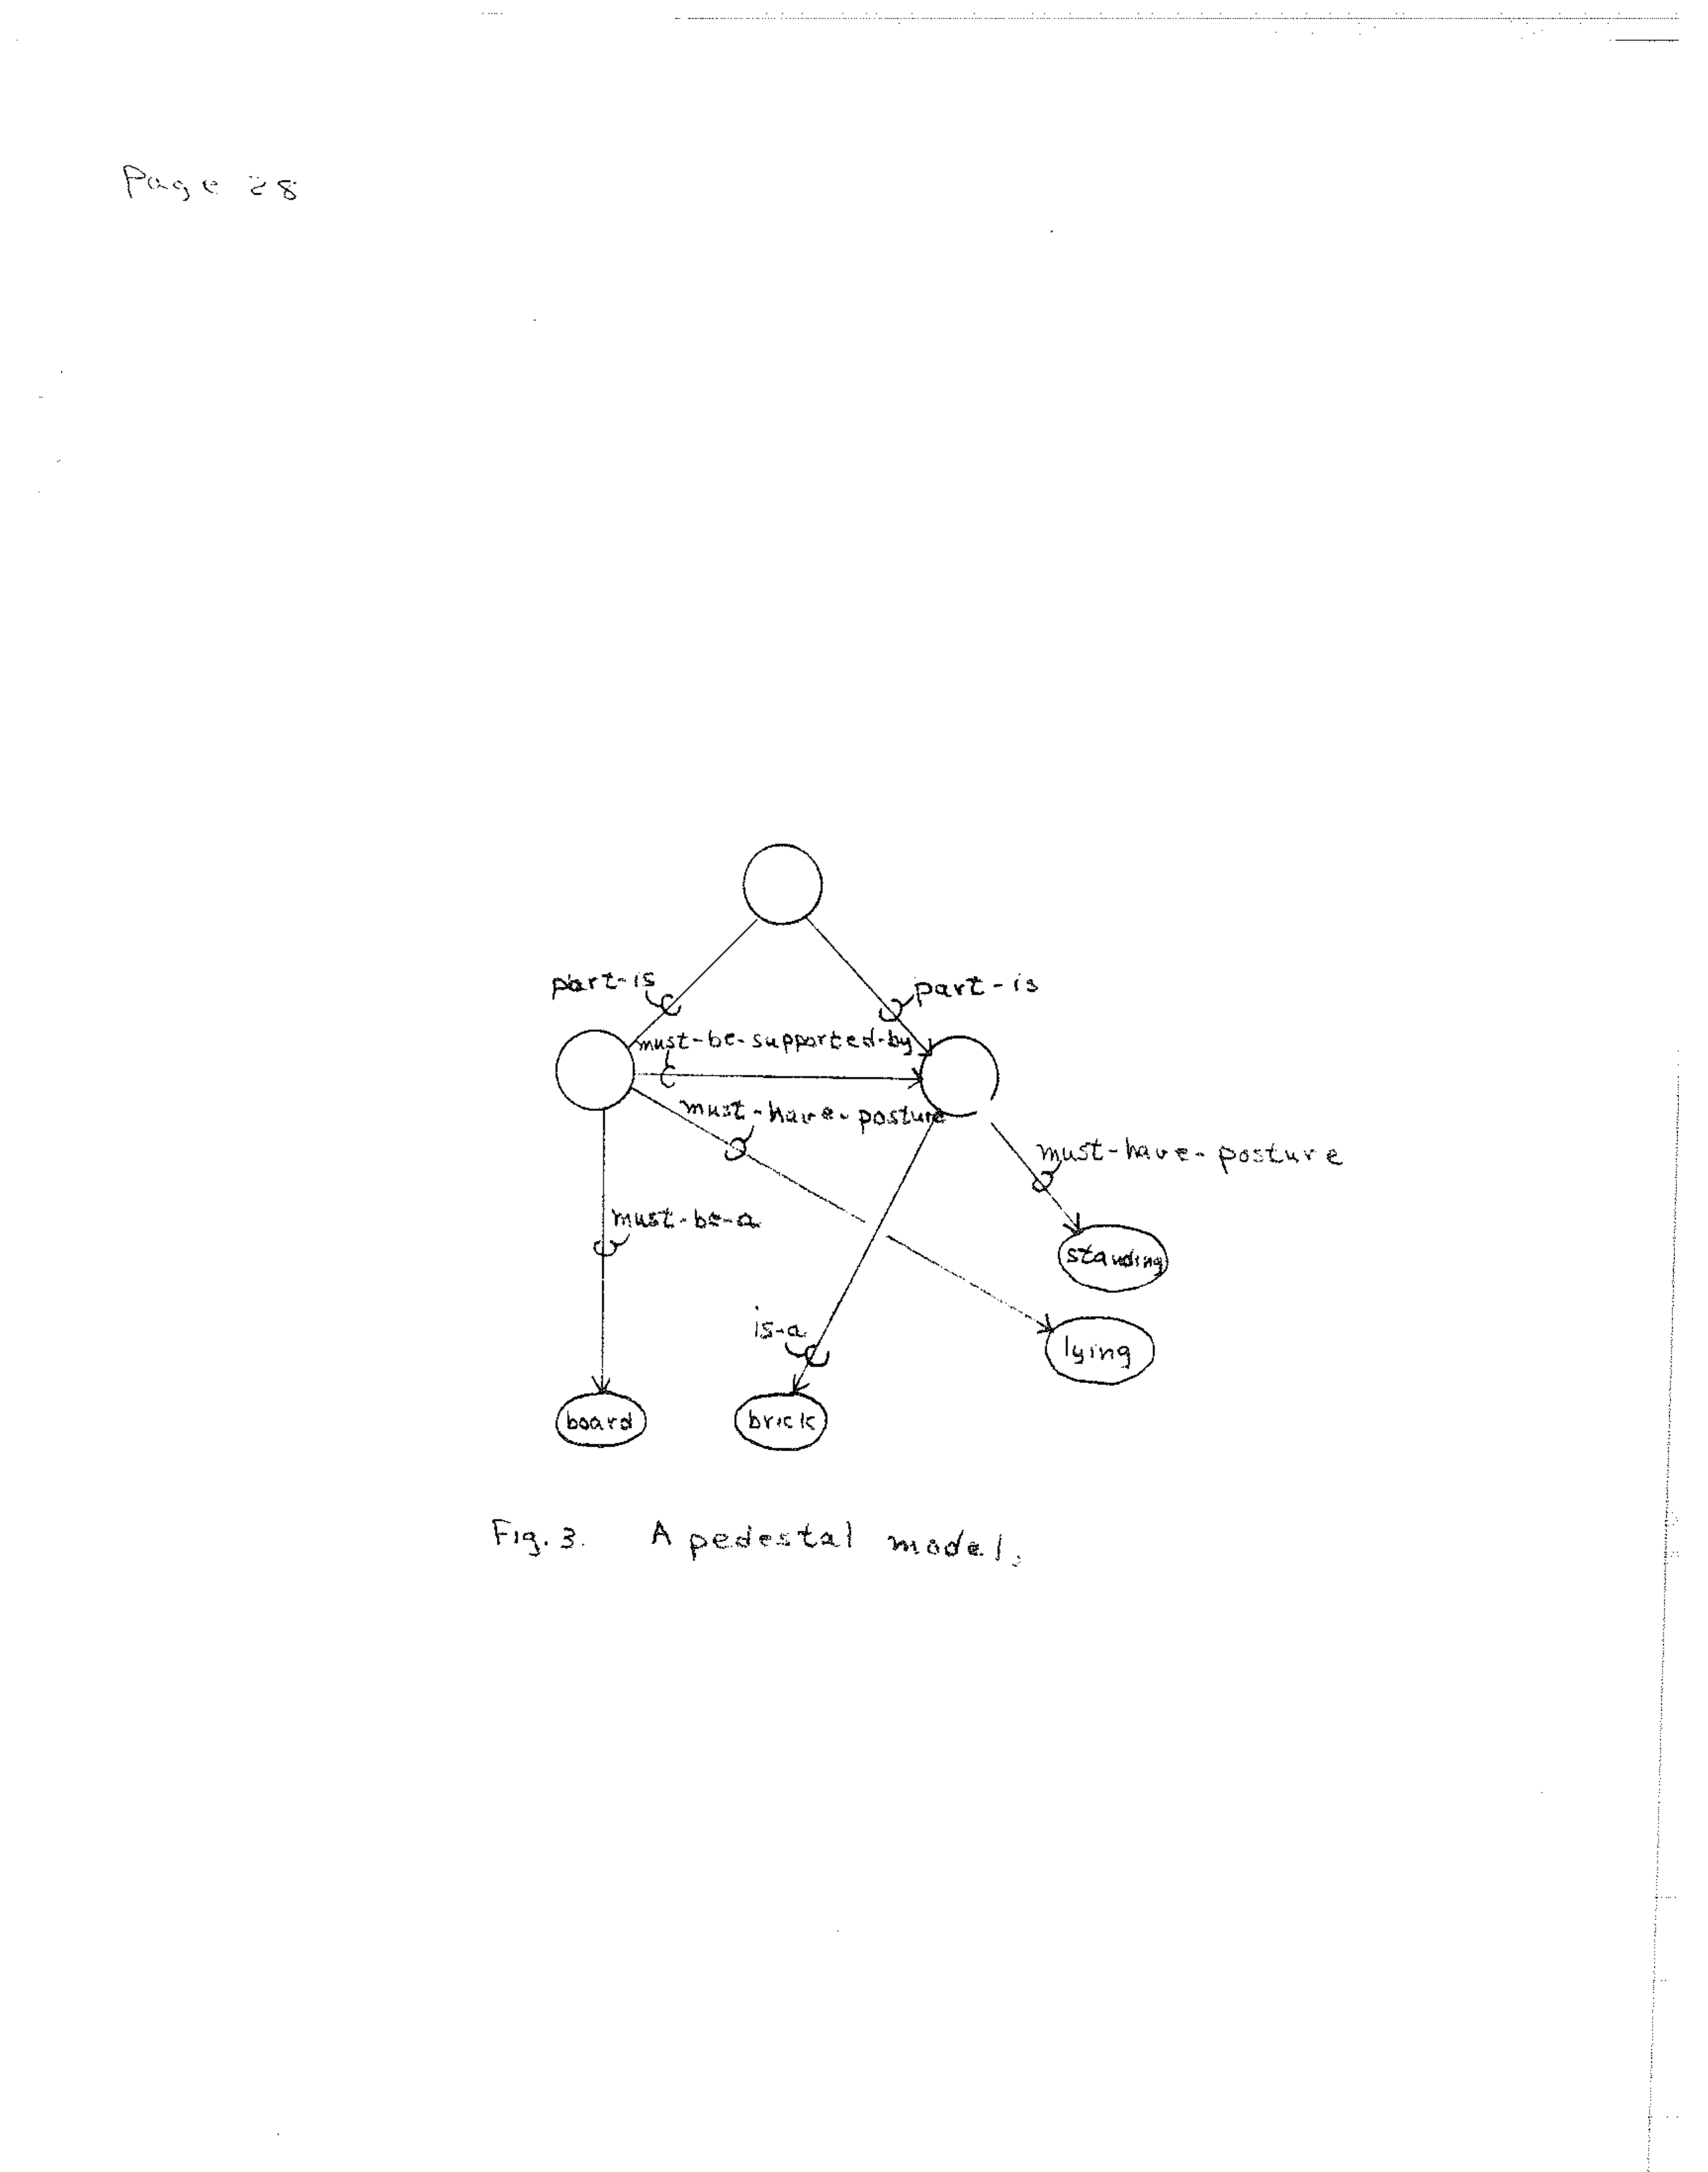 Page 28
part-is
part-is
must-be-supported-by
must-have-posture
must-have-posture
must-be-a
standing
is-a
lying
board
brick
Fig. 3. A pedestal model.